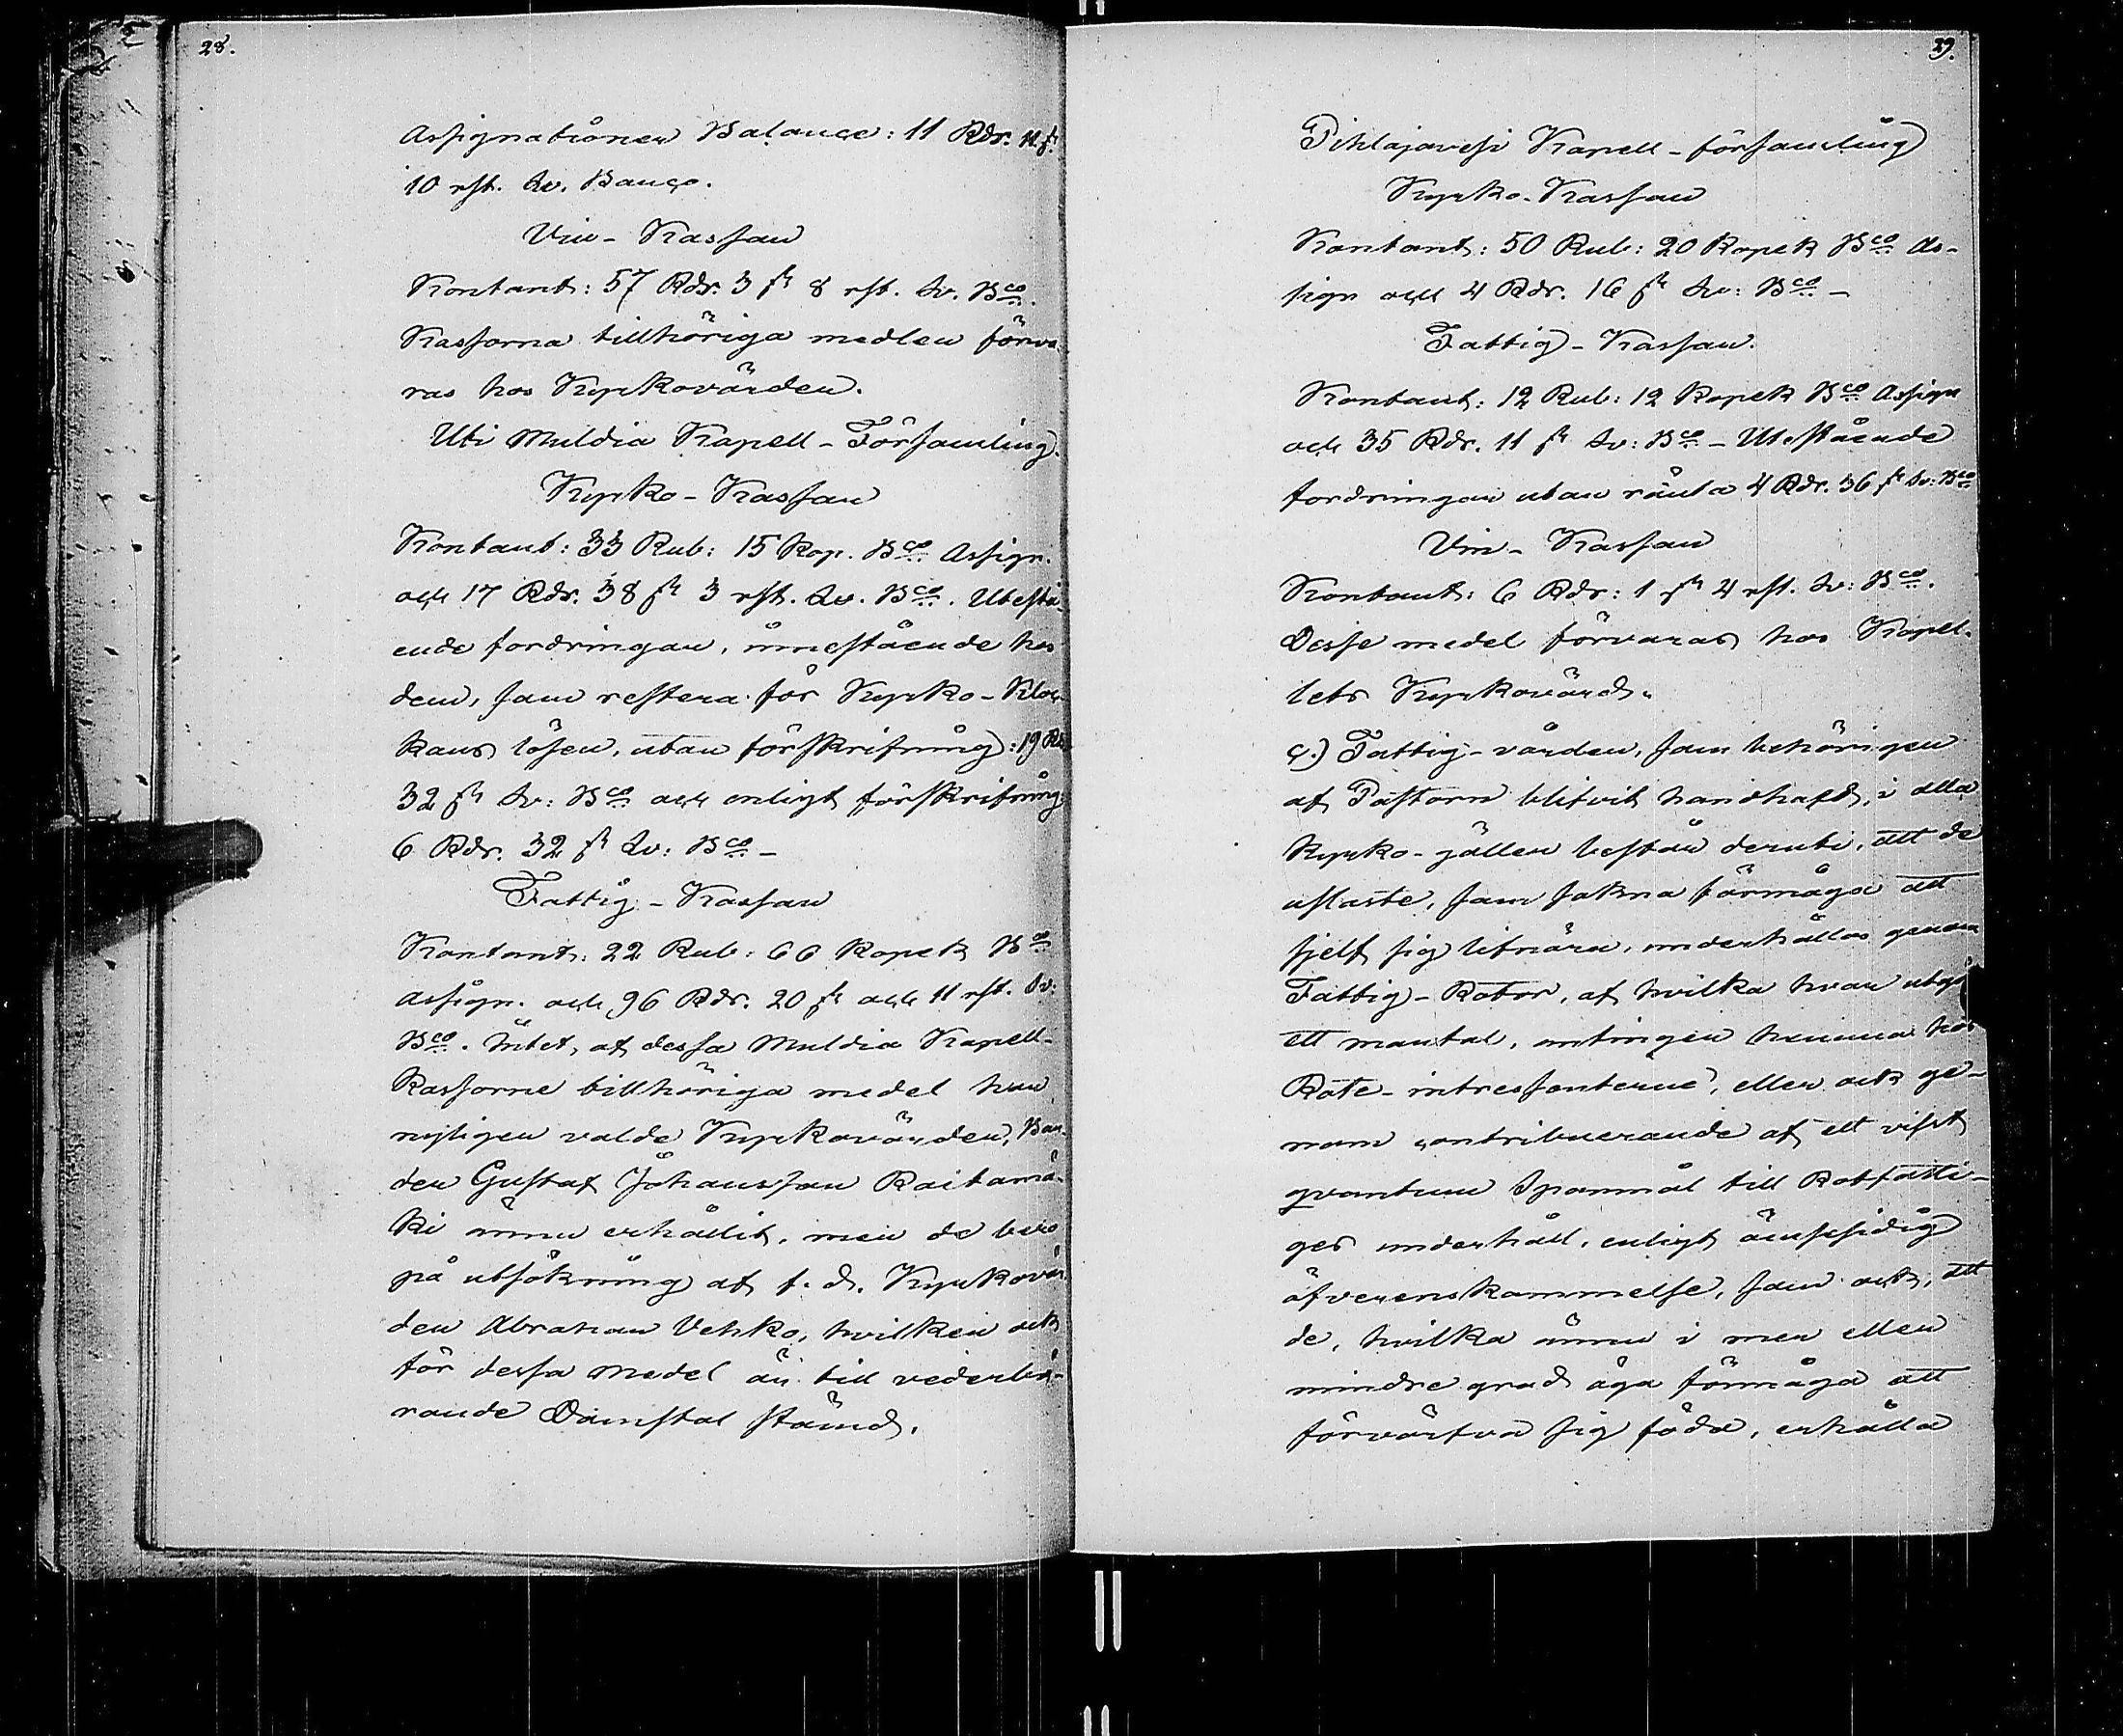 28.
Assignationer Balance: 11 Rdr. 11 ß
10 rst. Sv. Banco.
Vin-Kassan
Kontant: 57 Rdr. 3 ß 8 rst. Sv. Bco.
Kassorna tillhöriga medlen förva-
ras hos Kyrkovärden.
Uti Muldia Kapell-Församling.
Kyrko-Kassan
Kontant: 33 Rub: 15 Kop. Bco Assign.
och 17 Rdr. 38 ß 3 rst. Sv. Bco. Utestå-
ende fordringar, innestående hos
dem, som restera för Kyrko-Kloc-
kans lösen, utan förskrifning: 19 Rdr
32 ß Sv: Bco och enligt förskrifning:
6 Rdr. 32 ß Sv: Bco -
Fattig-Kassan
Kontant: 22 Rub: 66 Kopek Bco
Assign. och 96 Rdr. 20 ß och 11 rst. Sv:
Bco. Intet af dessa Muldia Kapell-
Kassorne tillhöriga medel har
nyligen valde Kyrkovärden, Bon-
den Gustaf Johansson Raitamä-
ki ännu erhållit, men de bero
på utsökning af f. d. Kyrkovär-
den Abraham Vehko, hvilken ock
för dessa medel är till vederbö-
rande Domstol stämd.
29.
Pihlajavesi Kapell-församling
Kyrko-Kassan
Kontant: 50 Rub: 20 Kopek Bco As-
sign och 4 Rdr. 16 ß Sv: Bco -
Fattig-Kassan.
Kontant: 12 Rub: 12 Kopek Bco Assign
och 35 Rdr. 11 ß Sv: Bco - Utestående
fordringar utan ränta 4 Rdr. 36 ß Sv: Bco
Vin-Kassan
Kontant: 6 Rdr: 1 ß 4 rst. Sv: Bco.
Desse medel förvaras hos Kapel-
lets Kyrkovärd.
c.) Fattig-vården, som behörigen
af Pastorn blifvit handhafd, i alla
Kyrko-gällen består deruti, att de
uslaste, som sakna förmåga att
sjelf sig lifnära, underhållas genom
Fattig-Rotor, af hvilka hvar utgör
ett mantal, antingen hemma hos
Rote-intressenterne, eller ock ge-
nom contribuerande af ett visst
qvantum Spannmål till Rotfatti-
ges underhåll, enligt ömsesidig
öfverenskommelse, som ock, att
de, hvilka ännu i mer eller
mindre grad äga förmåga att
förvärfva sig föda, erhålla